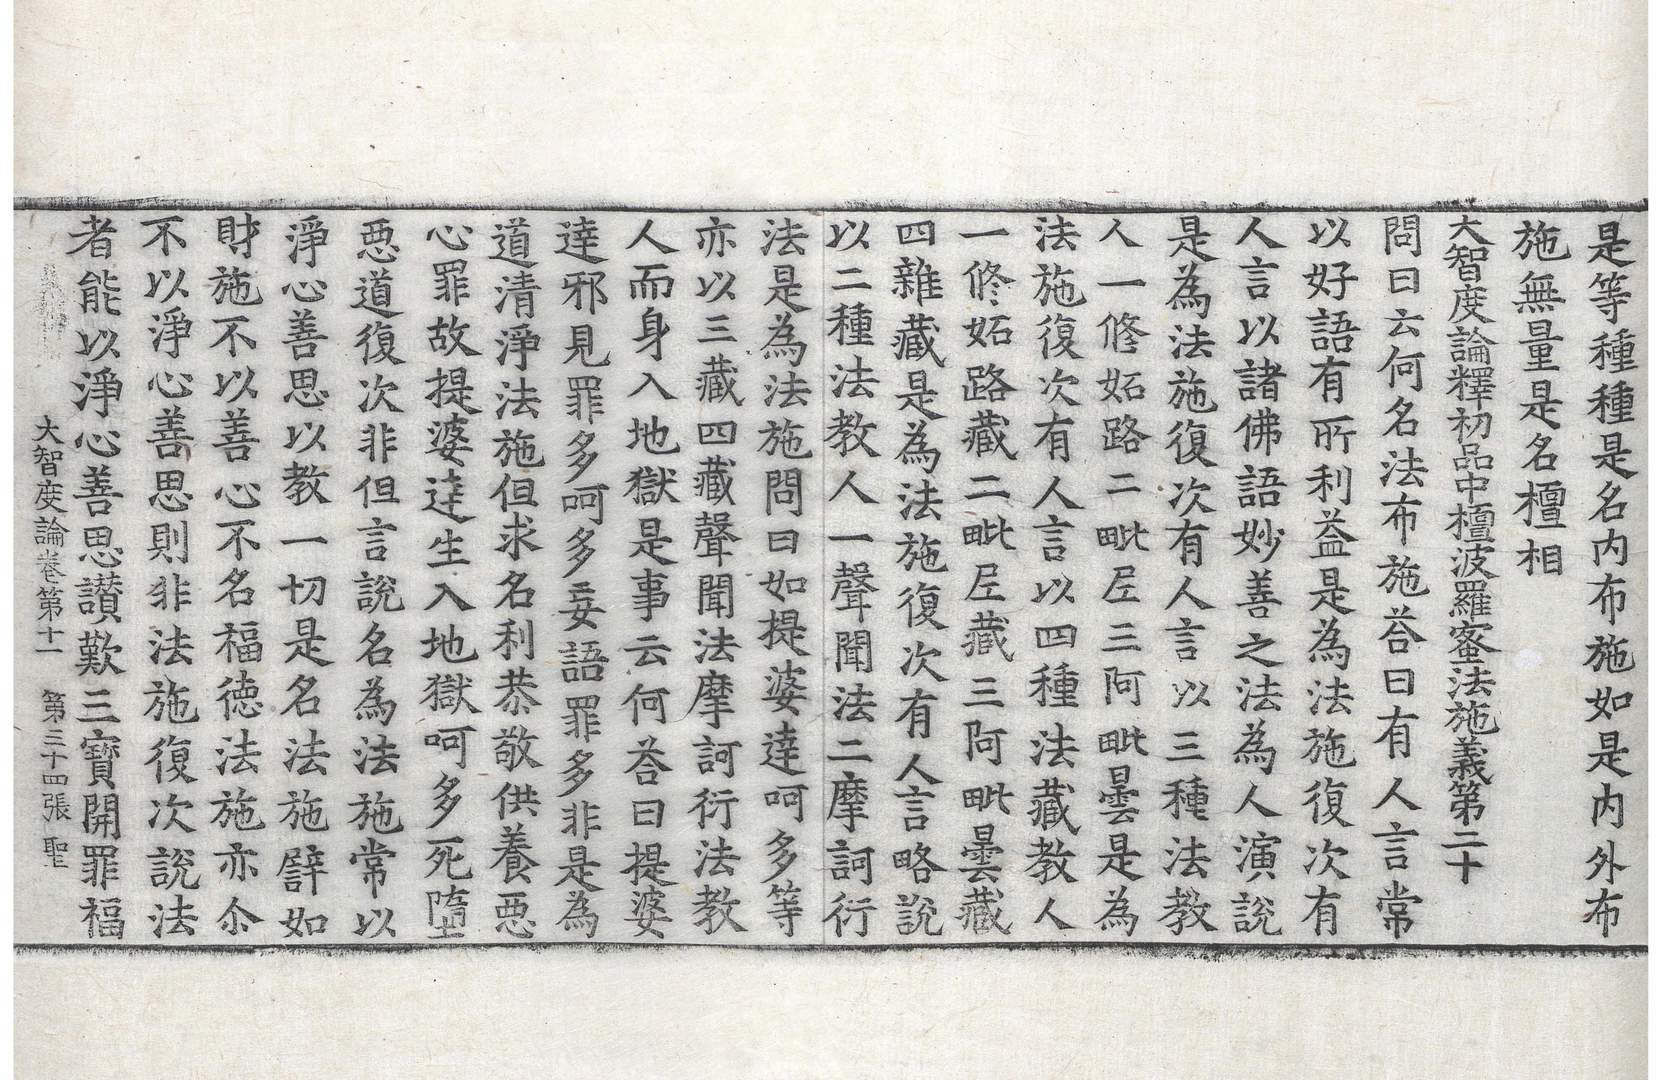 是等種種是名内布施如是内外布
施無量是名檀相
大智度論釋初品中檀波羅蜜法施義第二十
問曰云何名法布施荅曰有人言常
以好語有所利益是為法施復次有
人言以諸佛語妙善之法為人演說
是為法施復次有人言以三種法教
人一修妬路二毗𡰱三阿毗曇是為
法施復次有人言以四種法藏教人
一修妬路藏二毗𡰱藏三阿毗曇藏
四雜藏是為法施復次有人言略說
以二種法教人一聲聞法二摩訶衍
法是為法施問曰如提婆達呵多等
亦以三藏四藏聲聞法摩訶衍法教
人而身入地獄是事云何荅曰提婆
達邪見罪多呵多妄語罪多非是為
道清淨法施但求名利恭敬供養惡
心罪故提婆達生入地獄呵多死墮
惡道復次非但言說名為法施常以
淨心善思以教一切是名法施辟如
財施不以善心不名福德法施亦尒
不以淨心善思則非法施復次說法
者能以淨心善思讃歎三寶開罪福
大智度論卷第十一 第三十四張 聖